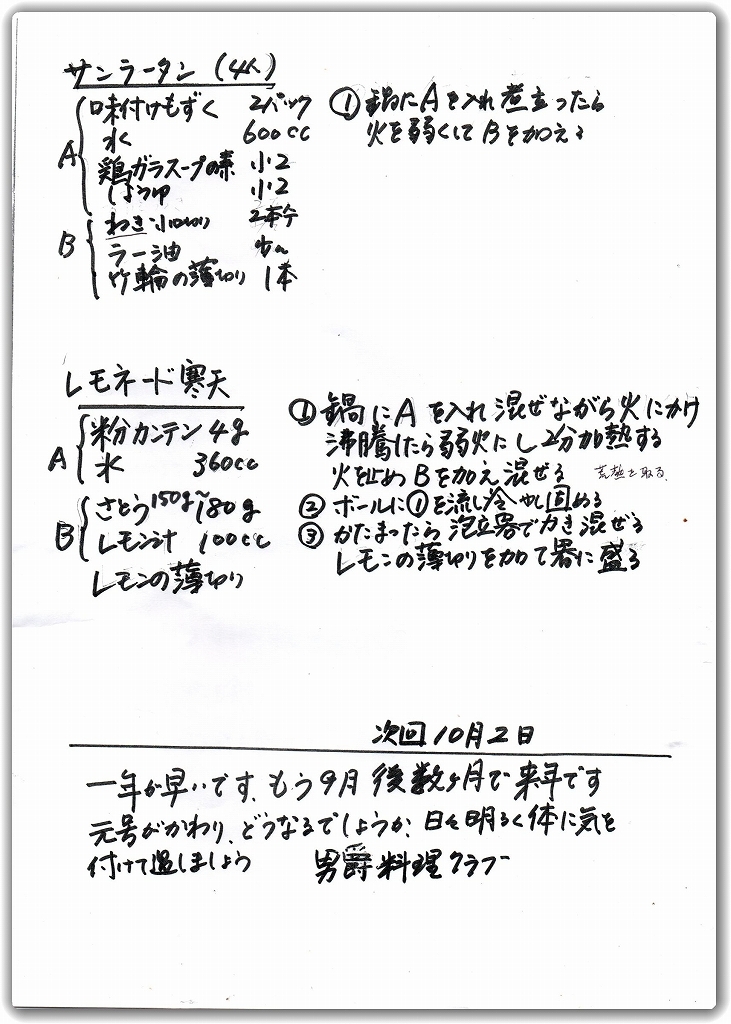 サンラータン (4人)
A
味付けもずく 2パック
水 600cc
鶏ガラスープの素 小2
しょうゆ 小2
B
ねぎ小口切り 2本分
ラー油 少々
竹輪の薄切り 1本
① 鍋にAを入れ煮立ったら
火を弱くしてBを加える
レモネード寒天
A
粉カンテン 4g
水 360cc
B
さとう 150g~180g
レモン汁 100cc
レモンの薄切り
① 鍋にAを入れ混ぜながら火にかけ
沸騰したら弱火にし2分加熱する
火を止めBを加え混ぜる
② ボールに①を流し冷やし固める
③ かたまったら泡立器でかき混ぜる
レモンの薄切りを加て器に盛る
次回10月2日
一年が早いです、もう9月 後数ヶ月で来年です
元号がかわり、どうなるでしょうか、日々明るく体に気を
付けて過しましょう 男爵料理クラブ